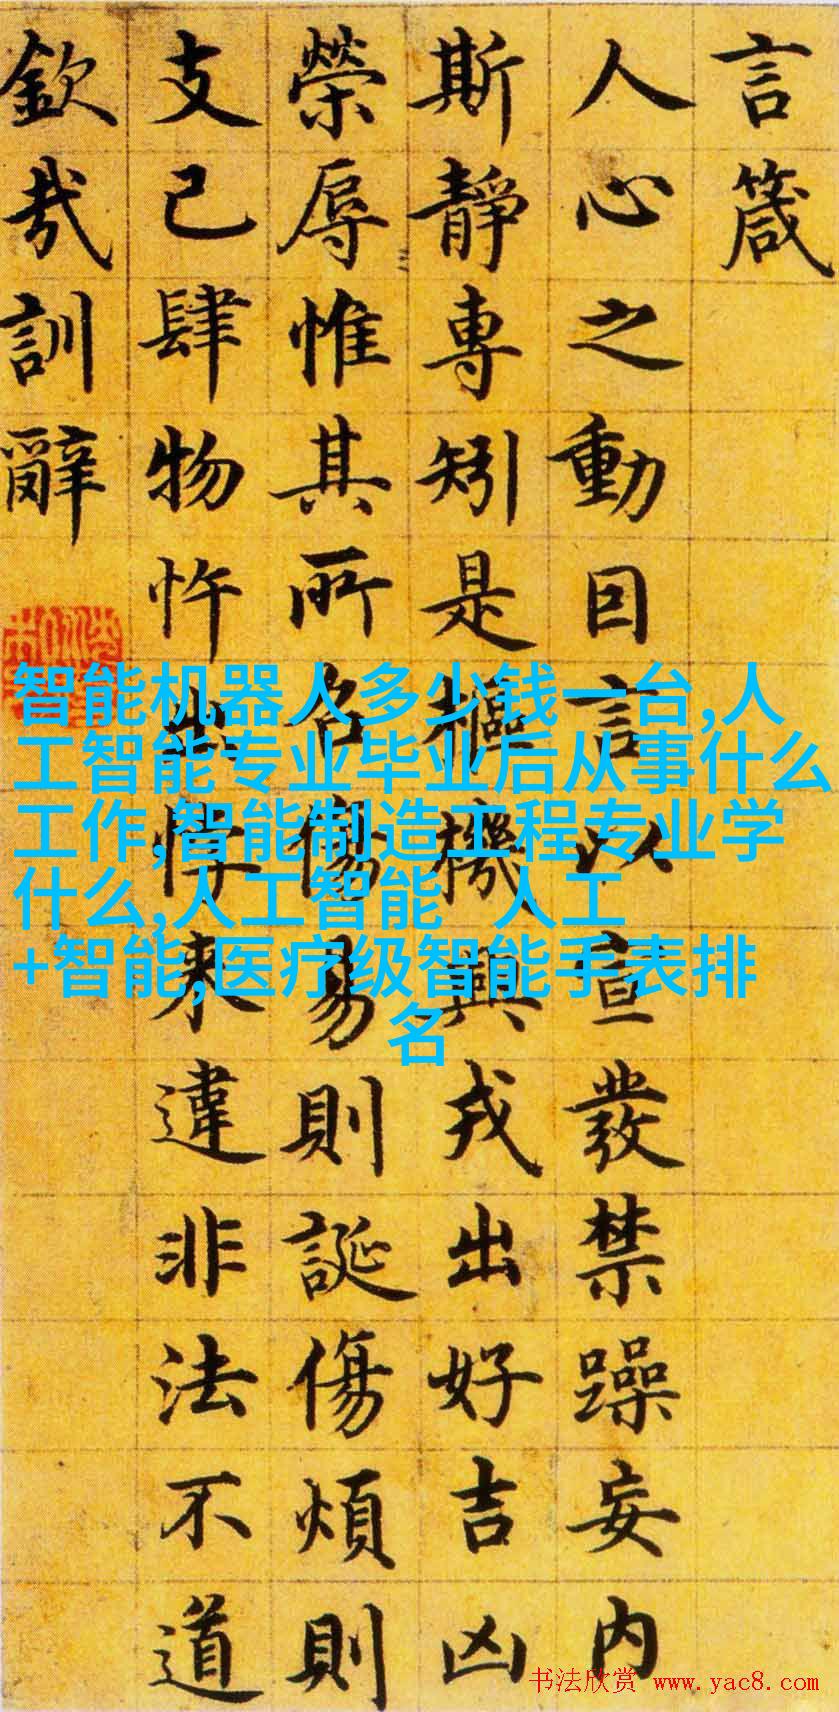 言箴
人心之動因言以宣發禁躁妄内
斯靜專矧是樞機興戎出好吉凶
榮辱惟其所召傷易則誕傷煩則
支己肆物忤出悖來違非法不道
欽哉訓辭
智能机器人多少钱一台,人
工智能专业毕业后从事什么
工作,智能制造工程专业学
什么,人工智能 人工
+智能,医疗级智能手表排
名
书法欣赏 www.yac8.com